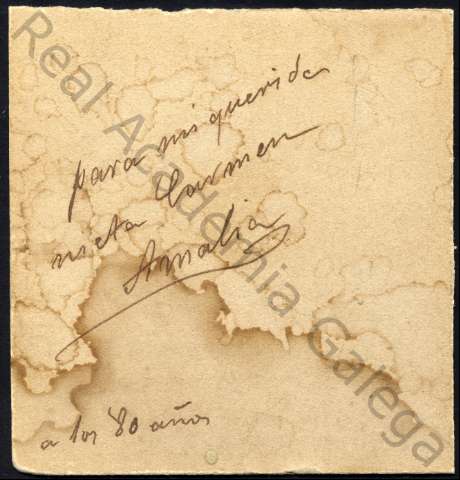 para mi querida
nieta Carmen
Amalia
a los 80 años
Real Academia Galega